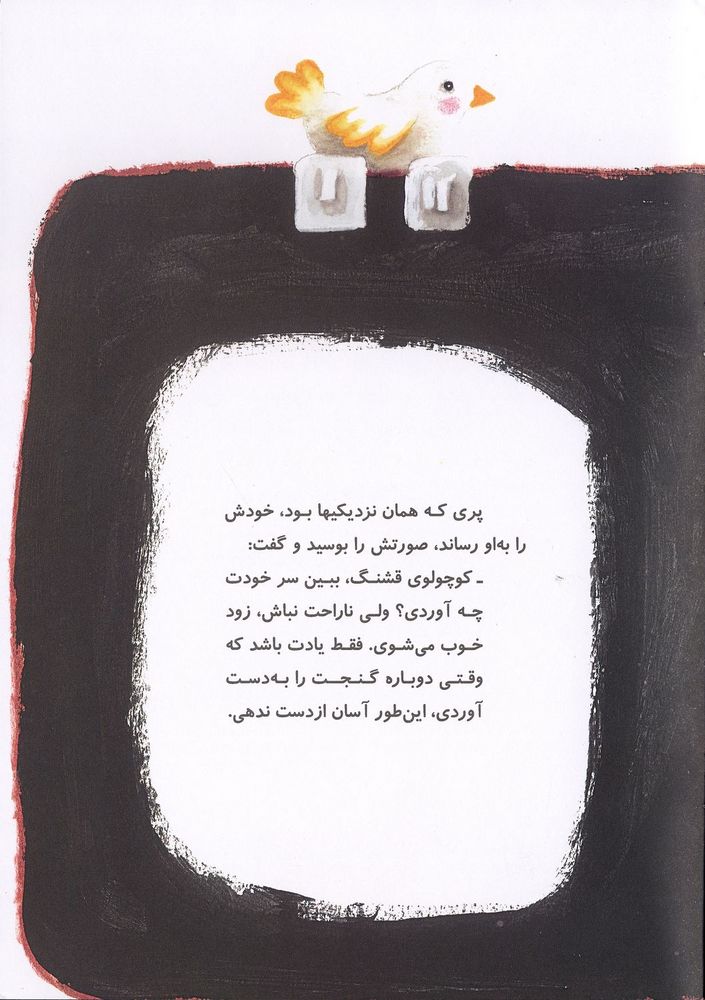 پری که همان نزدیکیها بود، خودش
را به‌او رساند، صورتش را بوسید و گفت:
ـ کوچولوی قشنگ، ببین سر خودت
چه آوردی؟ ولی ناراحت نباش، زود
خوب می‌شوی. فقط یادت باشد که
وقتی دوباره گنجت را به‌دست
آوردی، این‌طور آسان ازدست ندهی.